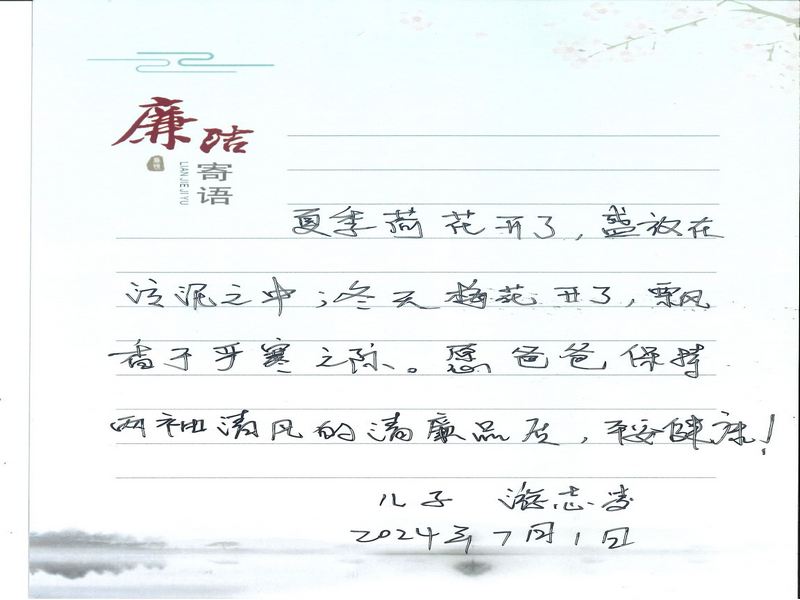 廉洁
寄语
LIANJIEJIYU
夏季荷花开了，盛放在
淤泥之中；冬天梅花开了，飘
香于严寒之际。愿爸爸保持
两袖清风的清廉品质，平安健康！
儿子 游志
2024年7月1日